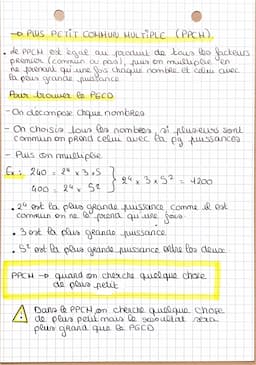 → PLUS PETIT COMMUN MULTIPLE (PPCM).
• Le PPCM est égal au produit de tous les facteurs
premier (commun ou pas), puis on multiplie en
ne prenant qu'une fois chaque nombre et celui avec
la plus grande puissance
Pour trouver le PGCD
- On décompose chaque nombres
- On choisis tous les nombres, si plusieurs sont
commun on prend celui avec la pg puissances
- Puis on multiplie
Ex : 240 = 2⁴ x 3 x 5
400 = 2⁴ x 5² } 2⁴ x 3 x 5² = 1200
• 2⁴ est la plus grande puissance comme il est
commun on ne le prend qu'une fois
• 3 est la plus grande puissance
• 5² est la plus grande puissance entre les deux
PPCM → quand on cherche quelque chose
de plus petit
! Dans le PPCM on cherche quelque chose
de plus petit mais le résultat sera
plus grand que le PGCD